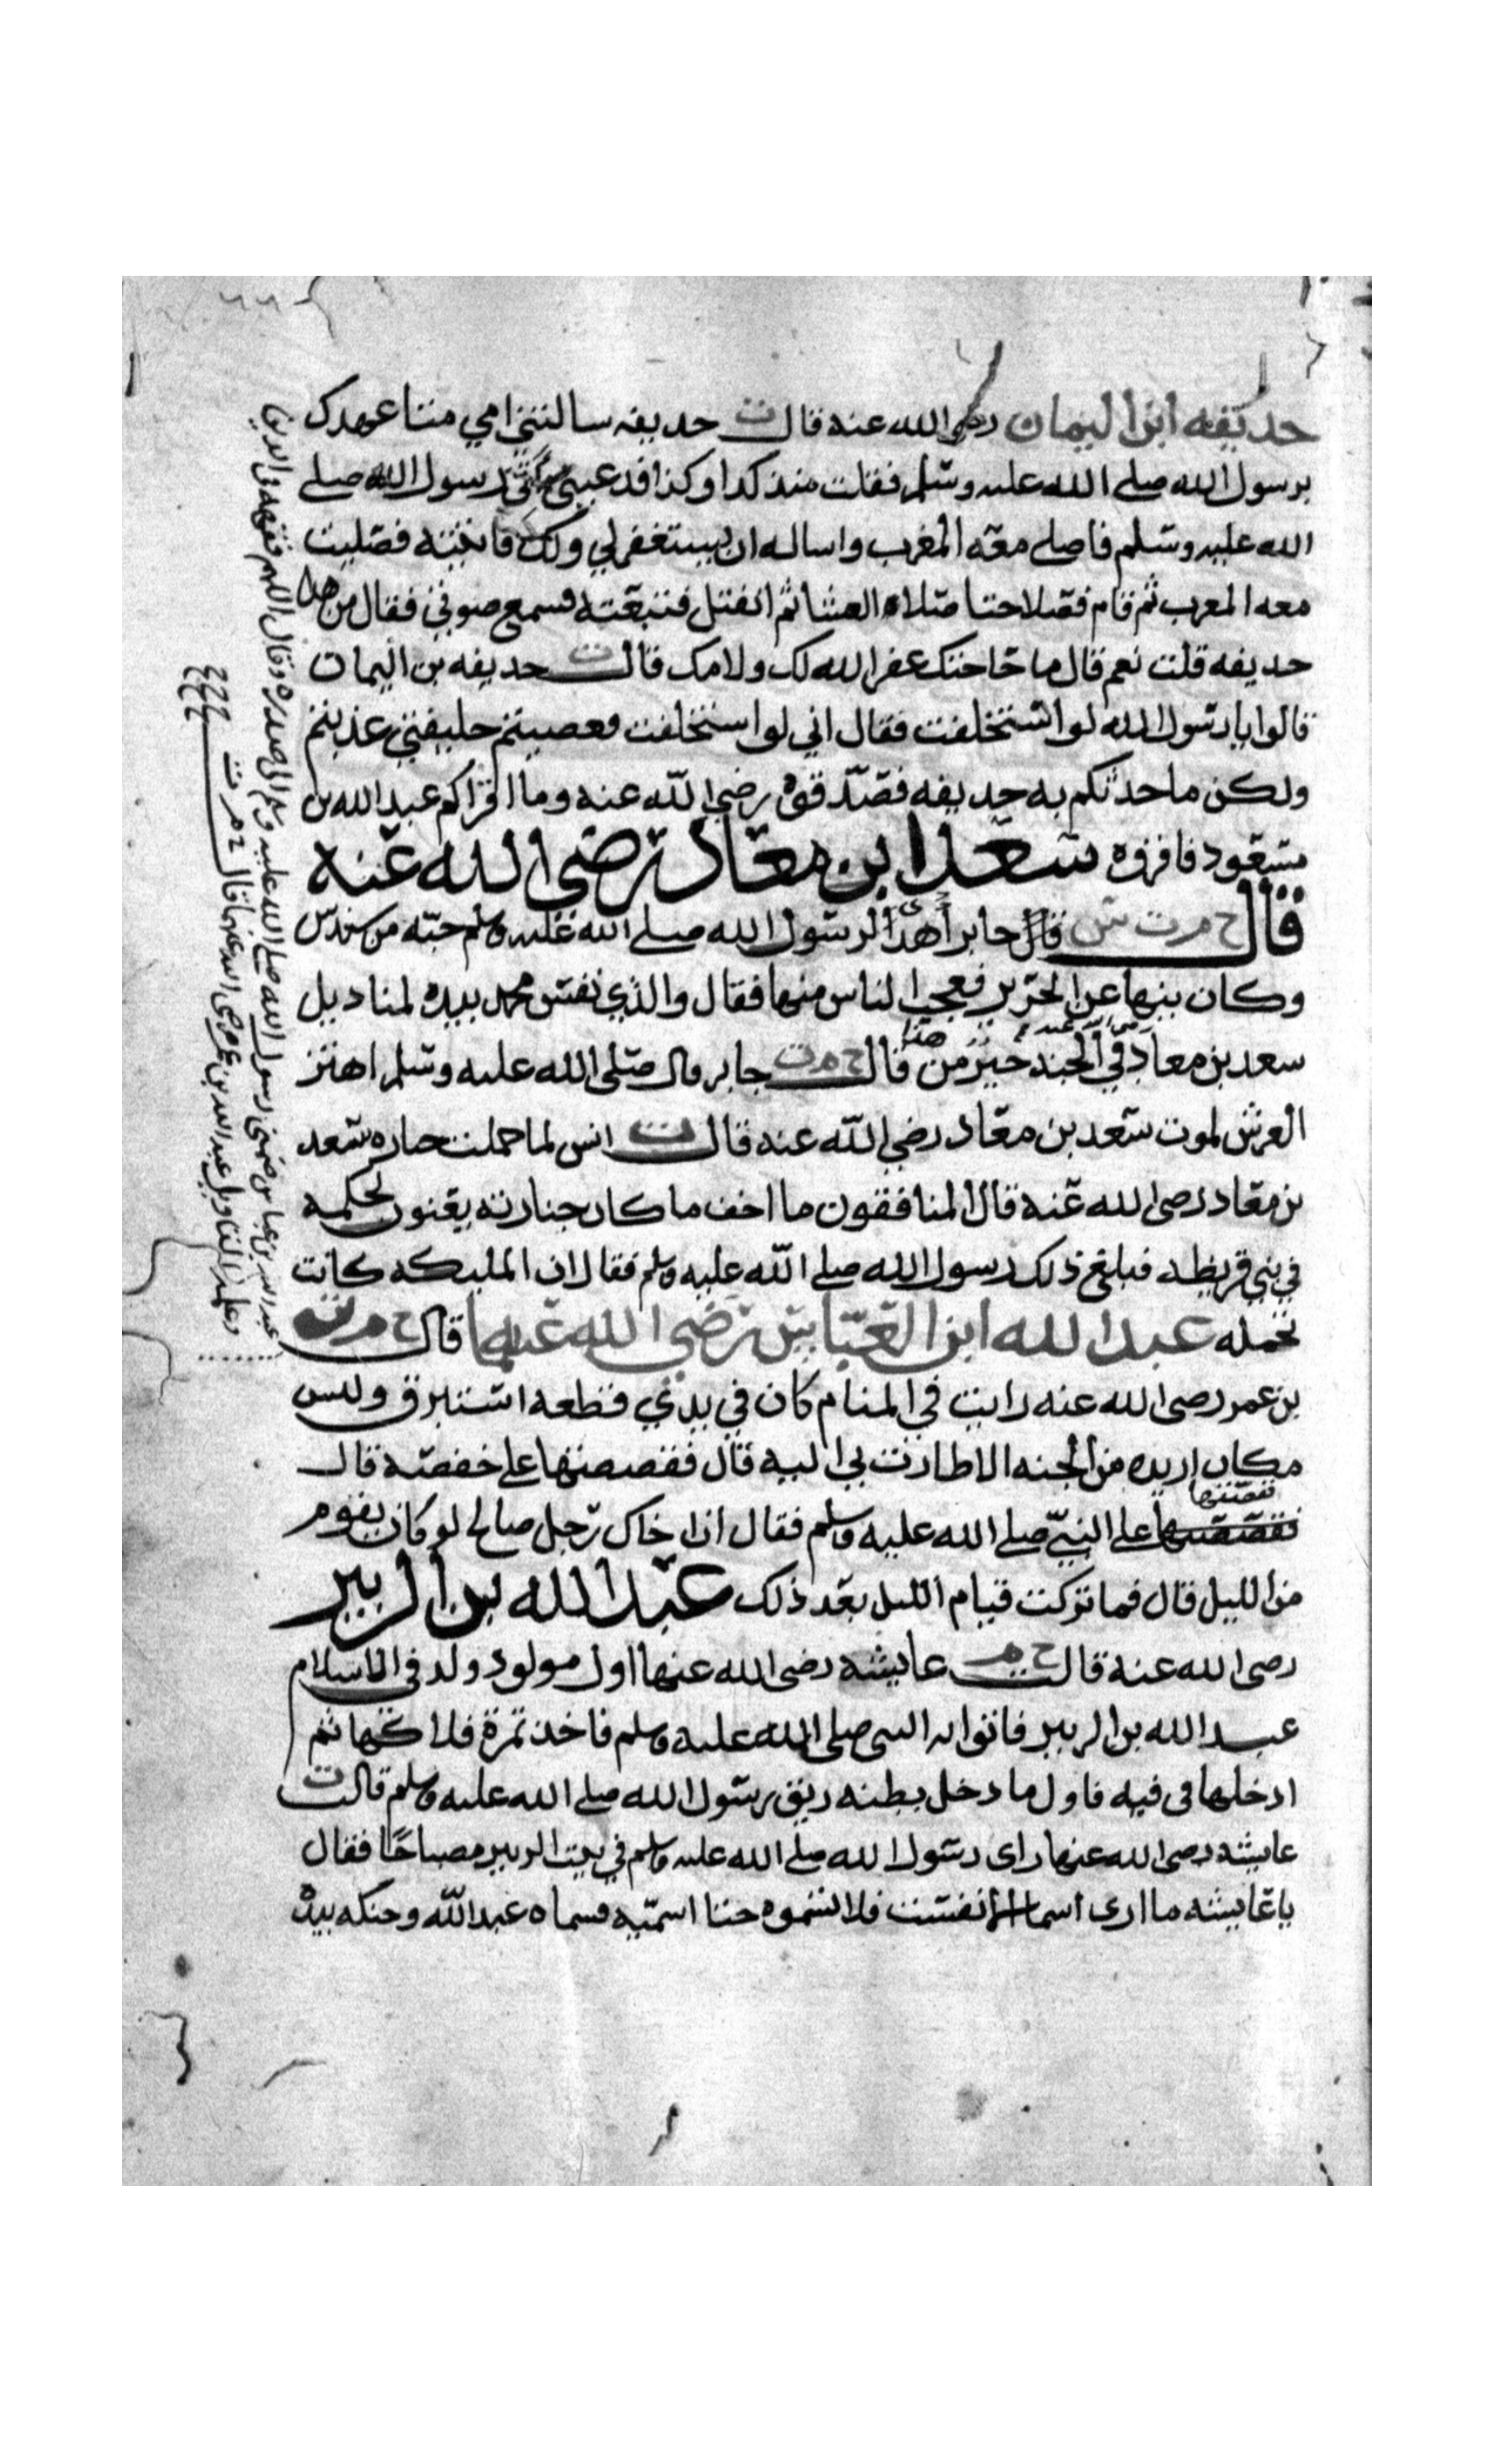 حديفه ابن اليمان رضي الله عنه قال ت حديفه سالتني امي متا عهدك
برسول الله صلى الله عليه وسلم فقلت منذ كدا وكذا رسول الله صلى
الله عليه وسلم فاصلي معه المغرب واساله ان يستغفر لي ولك فاتيته فصليت
معه المغرب ثم قام فصلا حتا صلاه العشا ثم انفتل فتبعته فسمع صوتي فقال من هدا
حديفه قلت نعم قال ما حاجتك غفر الله لك ولامك قال ت حديفه بن اليمان
قالوا يا رسول الله لو استخلفت فقال اني لو استخلفت فعصيتم خليفتي عذبتم
ولكن ما حدثكم به حديفه فصدقوه رضي الله عنه وما اقراكم عبد الله بن
مسعود فاقروه سعد ابن معاد رضي الله عنه
قال خ م ت س قال جابر اهدى لرسول الله صلى الله عليه وسلم جبه من سندس
وكان ينها عن الحرير فعجب الناس منها فقال والذي نفس محمد بيده لمناديل
سعد بن معاد رضي الله عنه في الجنه خير من هذا قال خ م ت جابر قال صلى الله عليه وسلم اهتز
العرش لموت سعد بن معاد رضي الله عنه قال ت انس لما حملت جنازه سعد
بن معاد رضي الله عنه قال المنافقون ما اخف ما كان جنازته يعنون لحكمه
في بني قريظه فبلغ ذلك رسول الله صلى الله عليه وسلم فقال ان المليكه كانت
تحمله عبد الله ابن العباس رضي الله عنهما قال خ م ت
بن عمر رضي الله عنه رايت في المنام كان في يدي قطعه استبرق وليس
مكان اريده من الجنه الا طارت بي اليه قال فقصصتها على حفصه قال
فقصتها على النبي صلى الله عليه وسلم فقال ان اخاك رجل صالح لو كان يقوم
من الليل قال فما تركت قيام الليل بعد ذلك عبد الله بن الزبير
رضي الله عنه قال خ م عايشه رضي الله عنها اول مولود ولد في الاسلام
عبد الله بن الزبير فاتوا به النبي صلى الله عليه وسلم فاخذ تمرة فلاكها ثم
ادخلها في فيه فاول ما دخل بطنه ريق رسول الله صلى الله عليه وسلم قالت
عايشه رضي الله عنها راى رسول الله صلى الله عليه وسلم في بيت الزبير مصباحا فقال
يا عايشه ما ارى اسما الا نفست فلا تسموه حتا اسميه فسماه عبد الله وحنكه بيده
قال خ م ت
عبد الله بن عباس ضمني رسول الله صلى الله عليه وسلم الى صدره وقال اللهم فقهه في الدين
وعلمه التاويل عبد الله بن عمر رضي الله عنهما